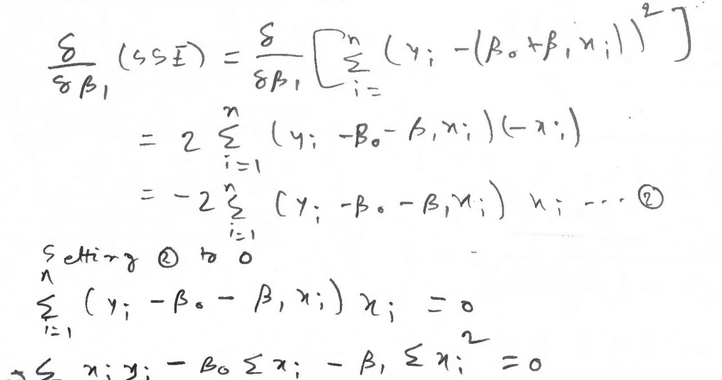 δ/δβ₁ (SSE) = δ/δβ₁ [ Σⁿᵢ₌ (yᵢ - (β₀ + β₁xᵢ))² ]
= 2 Σⁿᵢ₌₁ (yᵢ - β₀ - β₁xᵢ)(-xᵢ)
= -2 Σⁿᵢ₌₁ (yᵢ - β₀ - β₁xᵢ) xᵢ ... ②
Setting ② to 0
Σⁿᵢ₌₁ (yᵢ - β₀ - β₁xᵢ) xᵢ = 0
Σ xᵢyᵢ - β₀ Σxᵢ - β₁ Σxᵢ² = 0